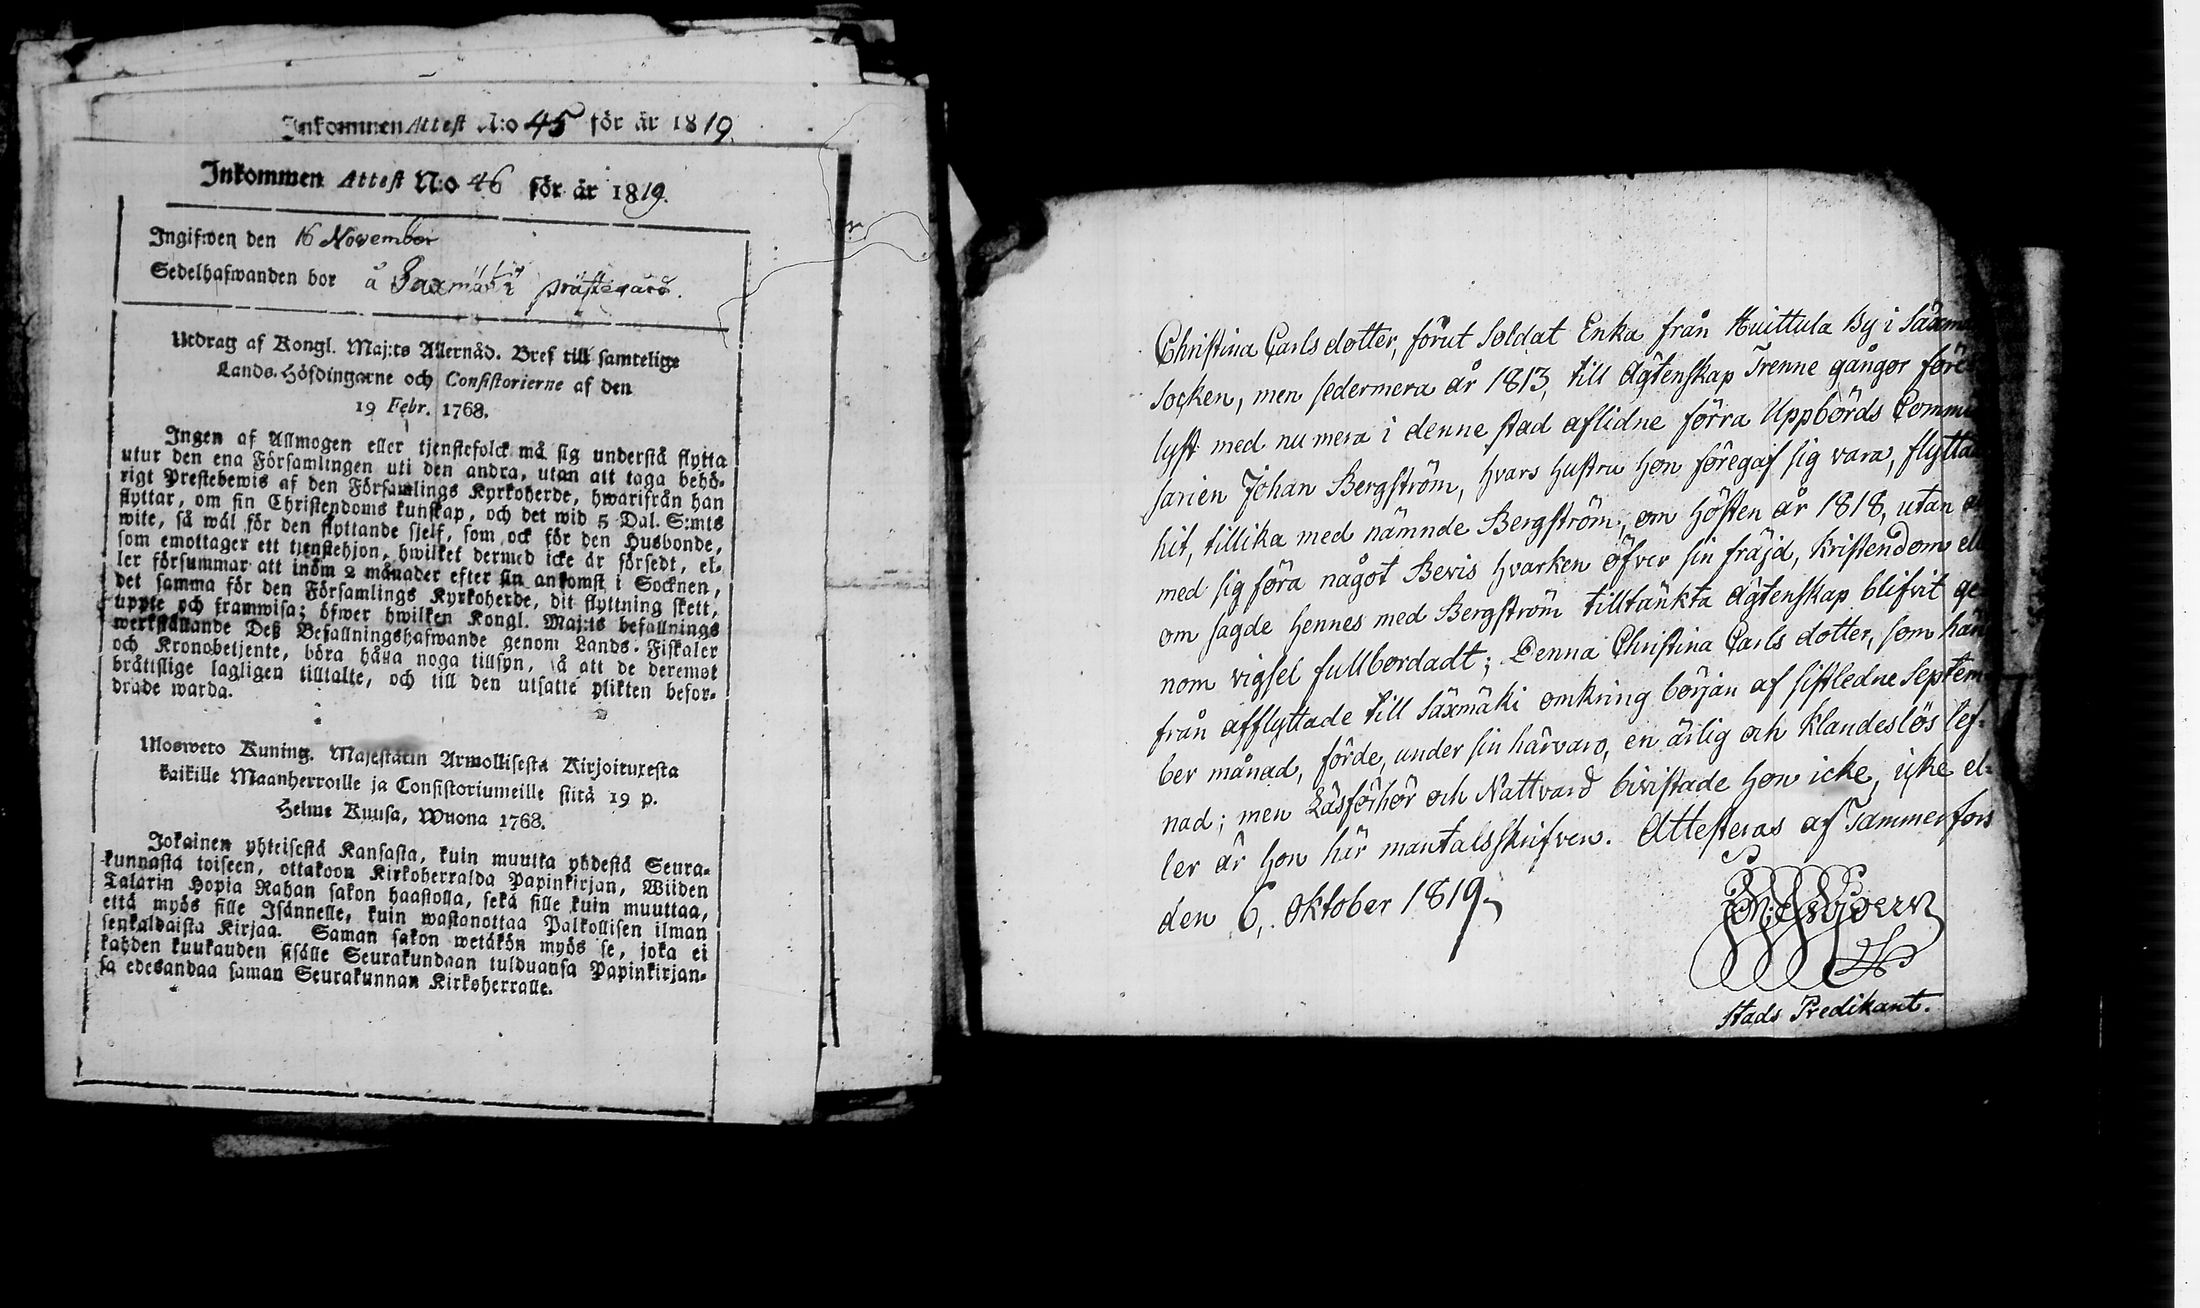 Inkommen Attest N:o 45 för år 1819.
Inkommen Attest N:o 46 för år 1819.
Ingifwen den 16 November
Sedelhafwanden bor å Saxmäki prästegård.
Utdrag af Kongl. Maj:ts Allernåd. Bref till samtelige
Lands-Höfdingarne och Consistorierne af den
19 Febr. 1768.
Ingen af Allmogen eller tjenstefolck må sig understå flytta
utur den ena Församlingen uti den andra, utan att taga behö-
rigt Prestebewis af den Församlings Kyrkoherde, hwarifrån han
flyttar, om sin Christendoms kunskap, och det wid 5 Dal. S:mts
wite, så wäl för den flyttande sjelf, som ock för den Husbonde,
som emottager ett tjenstehjon, hwilket dermed icke är försedt, el-
ler försummar att inom 2 månader efter sin ankomst i Socknen,
det samma för den Församlings Kyrkoherde, dit flyttning skett,
uppte och framwisa; öfwer hwilken Kongl. Maj:ts befallnings
werkställande Deß Befallningshafwande genom Lands-Fiskaler
och Kronobetjente, böra hålla noga tillsyn, så att de deremot
bråttslige lagligen tilltalte, och till den utsatte plikten befor-
drade warda.
Ulosweto Kuning. Majestätin Armollisesta Kirjoituxesta
kaikille Maanherroille ja Consistoriumeille siitä 19 p.
Helme Kuusa, Wuona 1768.
Jokainen yhteisestä Kansasta, kuin muutta yhdestä Seura-
kunnasta toiseen, ottakoon Kirkoherralda Papinkirjan, Wiiden
Talarin Hopia Rahan sakon haastolla, sekä sille kuin muuttaa,
että myös sille Isännelle, kuin wastanottaa Palkollisen ilman
senkaldaista Kirjaa. Saman sakon wetäkön myös se, joka ei
kahden kuukauden sisälle Seurakundaan tulduansa Papinkirjan-
sa edesandaa saman Seurakunnan Kirkoherralle.
Christina Carlsdotter, förut Soldat Enka från Huittula By i Säxmä
Socken, men sedermera år 1813, till Ägtenskap Trenne gångor före
lyst med nu mera i denne stad aflidne förra Uppbörds Commis
sarien Johan Bergström, hvars Hustru hon föregaf sig vara, flyttade
hit, tillika med nämnde Bergström, om Hösten år 1818, utan a
med sig föra något Bevis hvarken öfver sin fräjd, Kristendom ell
om sagde hennes med Bergström tilltänkta ägtenskap blifvit ge
nom vigsel fullbordadt; Denna Christina Carlsdotter, som här
från afflyttade till Säxmäki omkring början af sistledne Septem
ber månad, förde, under sin härvaro, en ärlig och klanderlös lef-
nad; men Läsförhör och Nattvard bivistade hon icke, icke el-
ler är hon här mantalsskrifven. Attesteras af Tammerfors
den 6. Oktober 1819.
Stads Predikant.